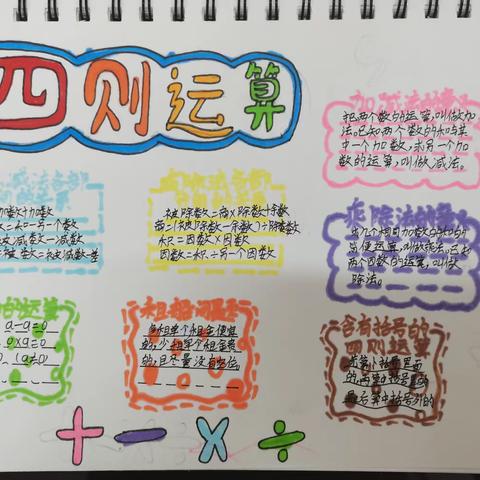 四则运算
加减法的意义
把两个数的运算,叫做加
法。已知两个数的和与其
中一个加数,求另一个加
数的运算,叫做减法。
加数+加数
另一个数
被减数-减数
被减数-差
被除数=商×除数+余数
商=(被除数-余数)÷除数
积=因数×因数
因数=积÷另一个因数
乘除法的意义
求几个相同加数的和的
简便运算,叫做乘法。已知
两个因数的运算,叫做
除法。
的运算
a-a=0
0×a=0
(a≠0)
租船问题
多租单个租金便宜
的,少租单个租金贵
的,且尽量没有空位。
含有括号的
四则运算
先算小括号里面
的,再算中括号里的
最后算中括号外的
+ - × ÷